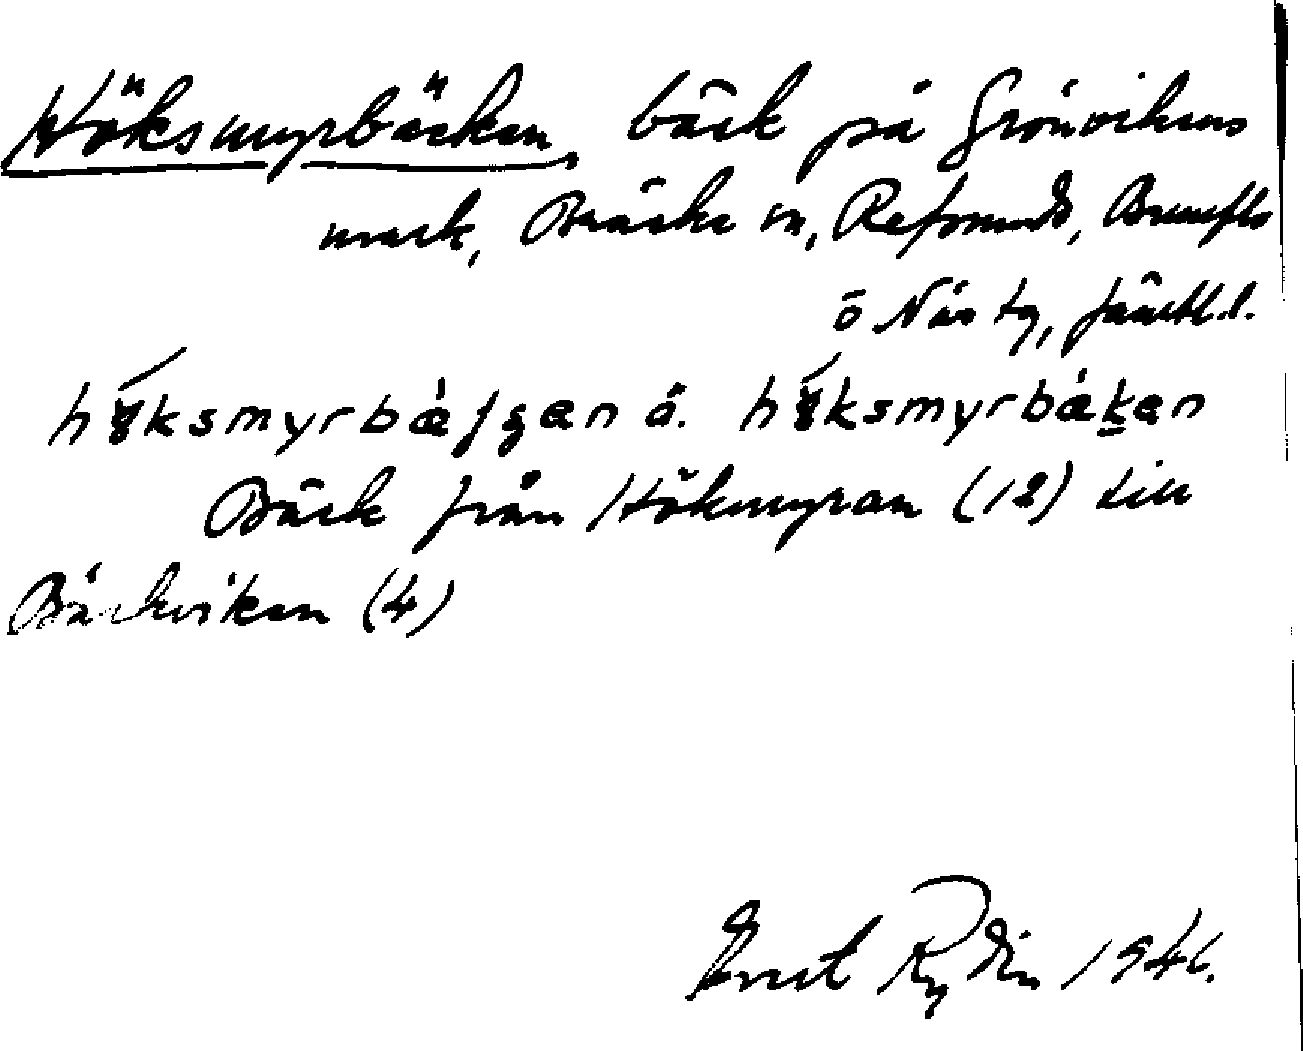 Höksmyrbäcken, bäck på Grönvikens
mark, Bräcke sn, Refsunds, Brunflo
o Näs tg, Jämtl.l.
hø̀ksmyrbæ̀ʃgen å. hø̀ksmyrbæ̀ḵen
Bäck från Hökmyran (12) till
Bäckviken (4)
Rydin 1946.